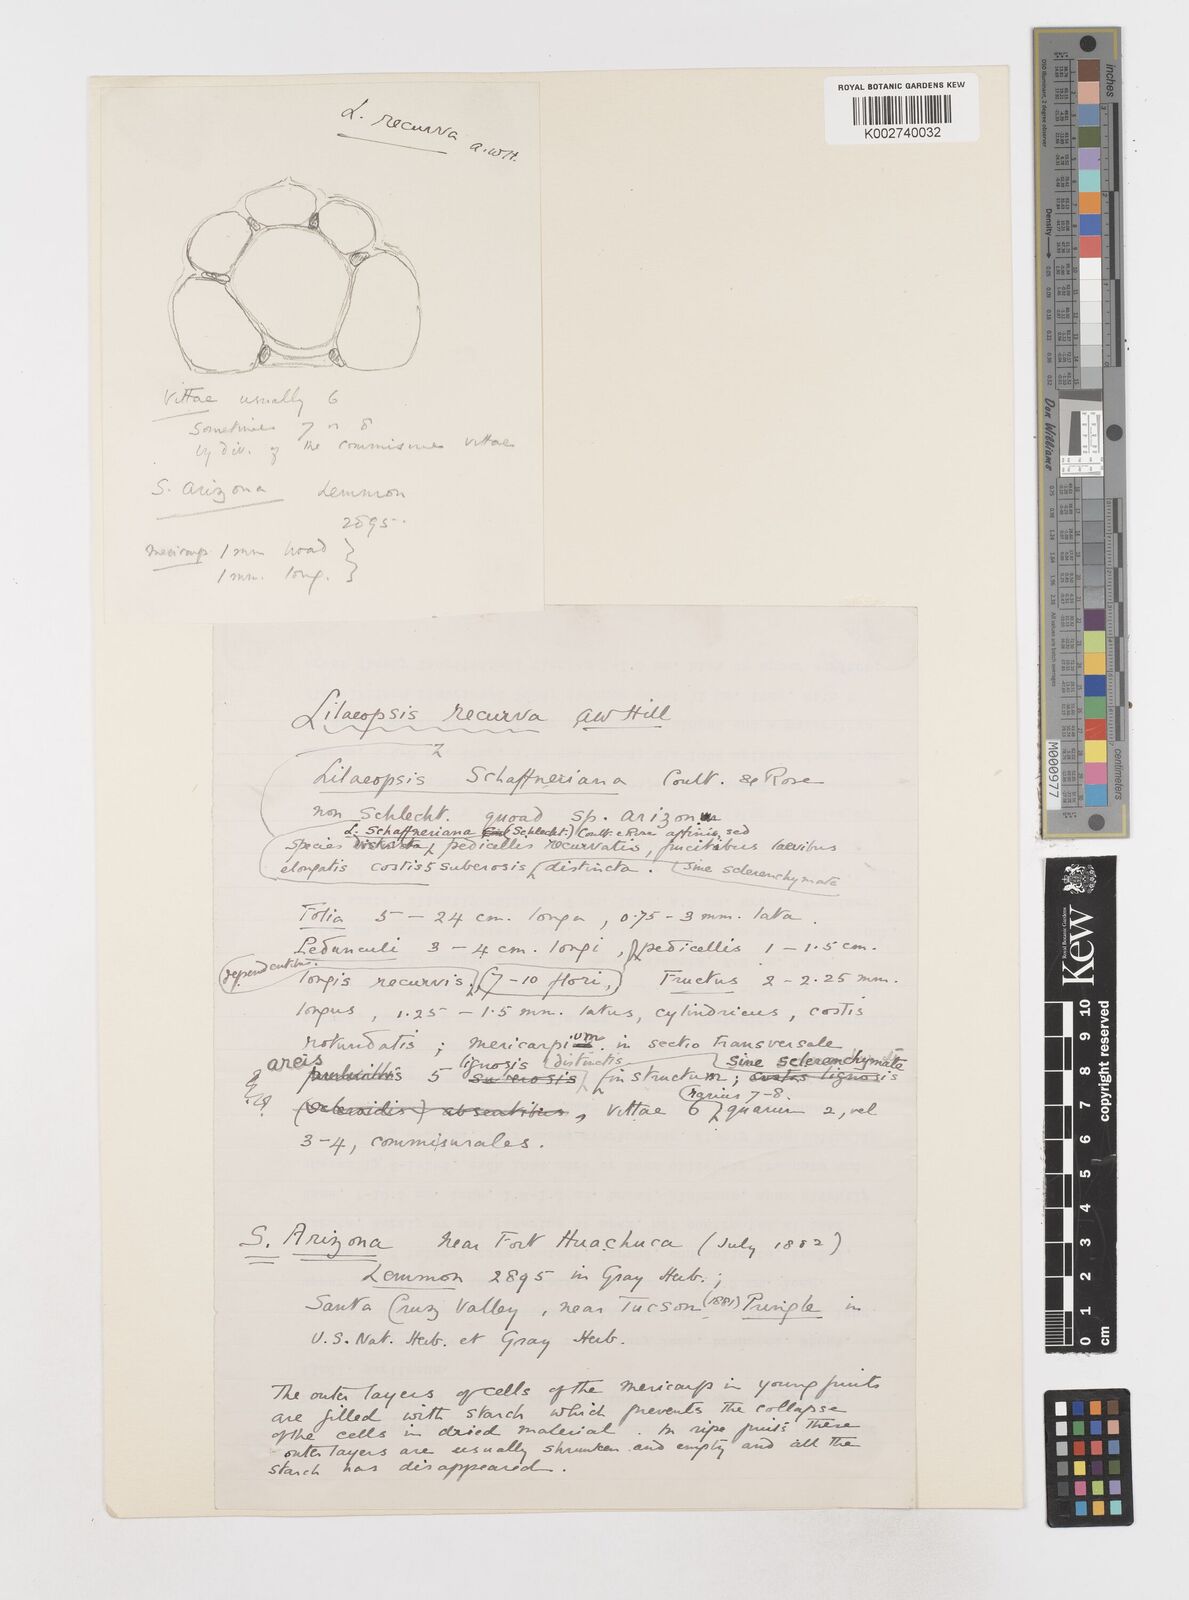 ROYAL BOTANIC GARDENS KEW
K002740032
L. recurva
A.W.H.
Vittae usually 6
Sometimes 7 or 8
by div. of the commissures vittae
S. Arizona Lemmon
2895.
Mericarp 1 mm broad
1 mm. long.
Lilaeopsis recurva AW Hill
Lilaeopsis Schaffneriana Coult. & Rose
non Schlecht. quoad sp. Arizon
L. Schaffneriana (Schlecht.) Coult. & Rose affinis, sed
Species distincta, pedicellis recurvatis, fructibus laevibus
elongatis costis 5 suberosis distincta. sine sclerenchymate
Folia 5 – 24 cm. longa, 0.75 – 3 mm. lata.
Pedunculi 3 – 4 cm. longi, pedicellis 1 – 1.5 cm.
dependentibus.
longis recurvis, (7 – 10 flori,) Fructus 2 – 2.25 mm.
longus, 1.25 – 1.5 mm. latus, cylindricus, costis
rotundatis; mericarpium in sectio transversale
areis lignosis distinctis sine sclerenchymate
5 suberosis instructum; costis lignosis
rarius 7-8.
(scleroidis) absentibus, vittae 6 quarum 2, vel
3-4, commisurales.
S. Arizona near Fort Huachuca (July 1882)
Lemmon 2895 in Gray Herb.;
Santa Cruz Valley, near Tucson (1881) Pringle in
U.S. Nat. Herb. et Gray Herb.
The outer layers of cells of the mericarp in young fruits
are filled with starch which prevents the collapse
of the cells in dried material. In ripe fruits these
outer layers are usually shrunken and empty and all the
starch has disappeared.
inches
centimetres
Density
Don Williams
M000977
KEW
Royal Botanic Gardens
copyright reserved
0 1 2 3 4 5 6 7 8 9 10
cm